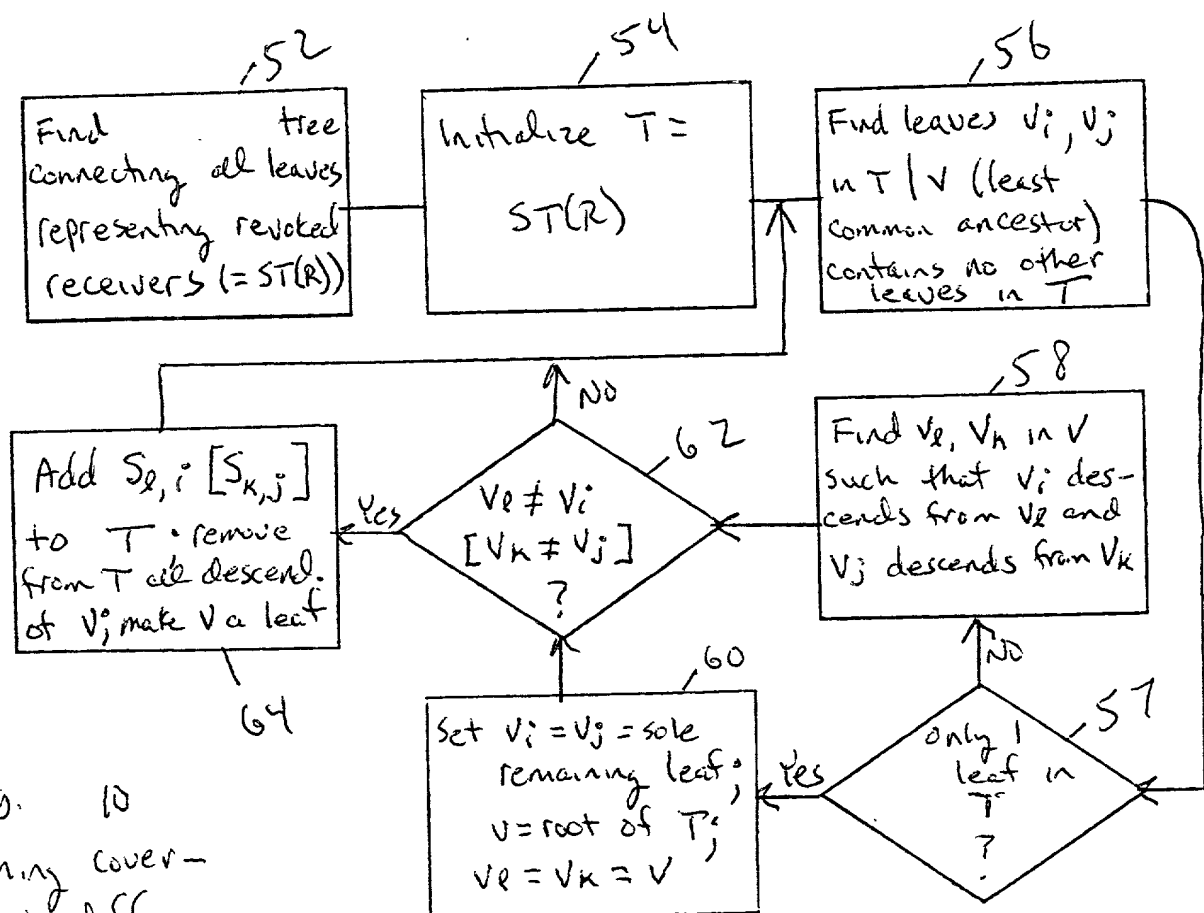 52
Find tree
connecting all leaves
representing revoked
receivers (= ST(R))
54
Initialize T =
ST(R)
56
Find leaves vi, vj
in T | V (least
common ancestor)
contains no other
leaves in T
58
Find vl, vk in V
such that vi des-
cends from vl and
Vj descends from Vk
NO
62
Vl ≠ Vi
[Vk ≠ Vj]
?
Yes
Add Sl,i [Sk,j]
to T · remove
from T all descend.
of V; make V a leaf
64
60
Set Vi = Vj = sole
remaining leaf;
v = root of T;
Vl = Vk = V
Yes
NO
57
only 1
leaf in
T
?
10
cover-